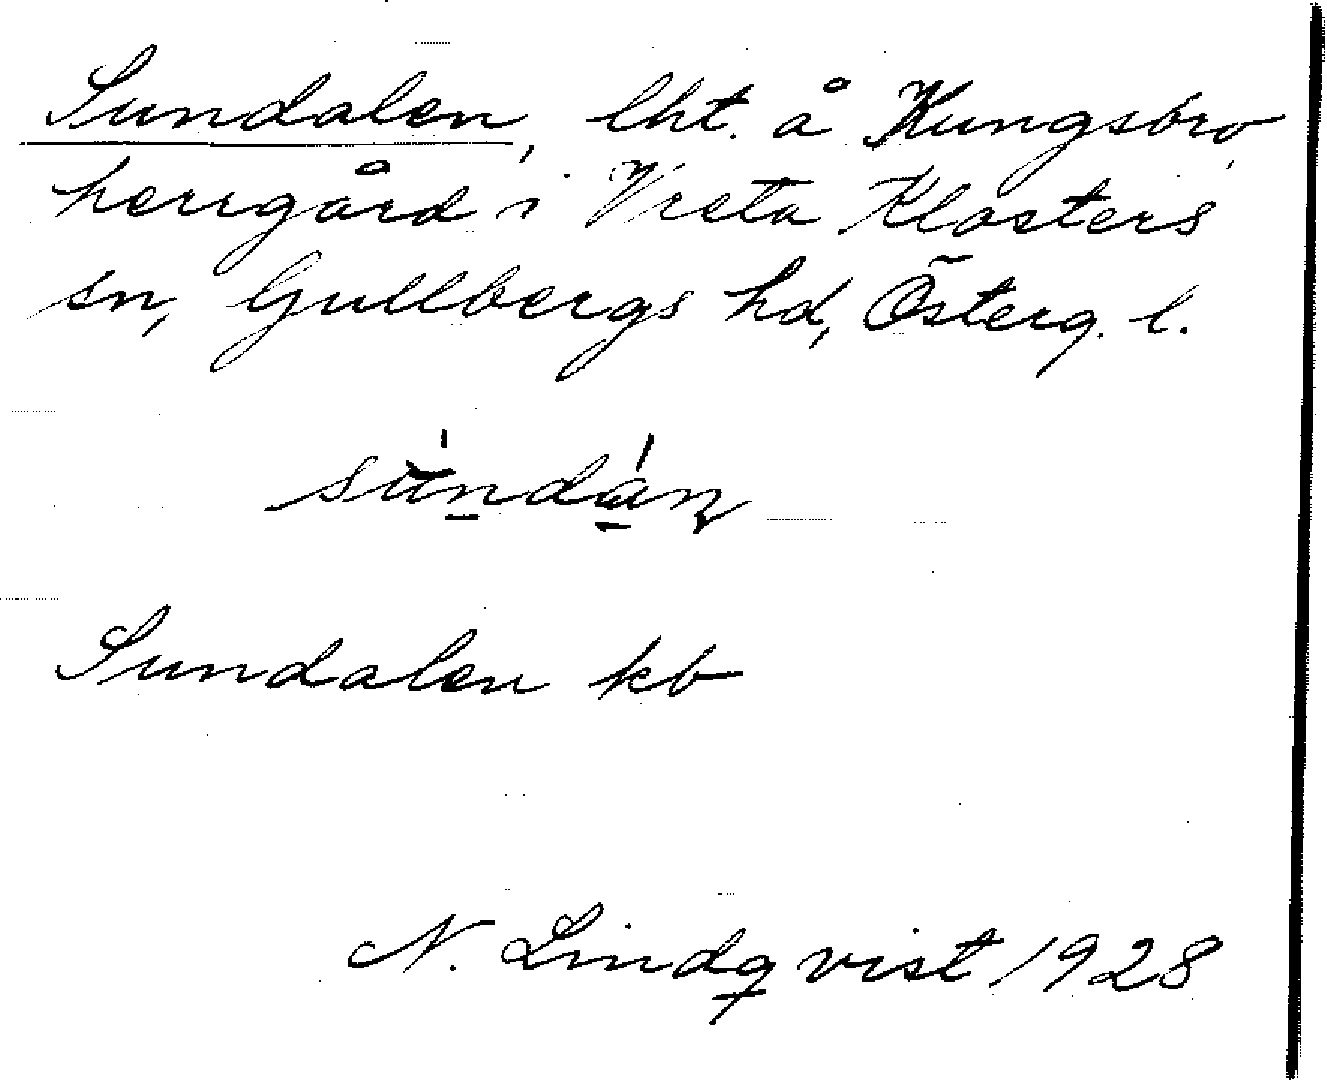 Sundalen, lht. å Kungsbro
herrgård i Vreta Klosters
sn, Gullbergs hd, Österg. l.
Sundalen kb
N. Lindqvist 1928